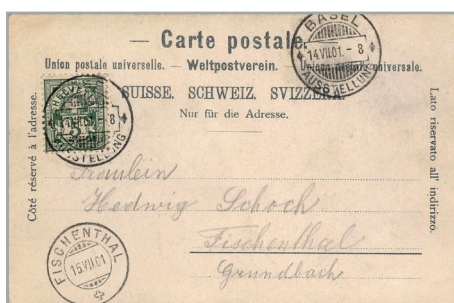 — Carte postale.
Union postale universelle. — Weltpostverein. — Unione postale universale.
SUISSE. SCHWEIZ. SVIZZERA.
Nur für die Adresse.
Côté réservé à l'adresse.
Lato riservato all' indirizzo.
BASEL
14.VII.01.-8
AUSSTELLUNG
HELVETIA
5
8
AUSSTELLUNG
Fräulein
Hedwig Schoch
Fischenthal
Grundbach
FISCHENTHAL
15.VII.01